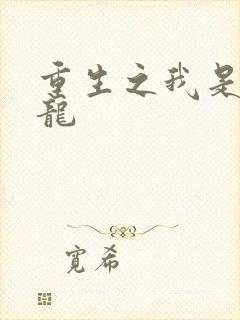 重生之我是
龍
寛希